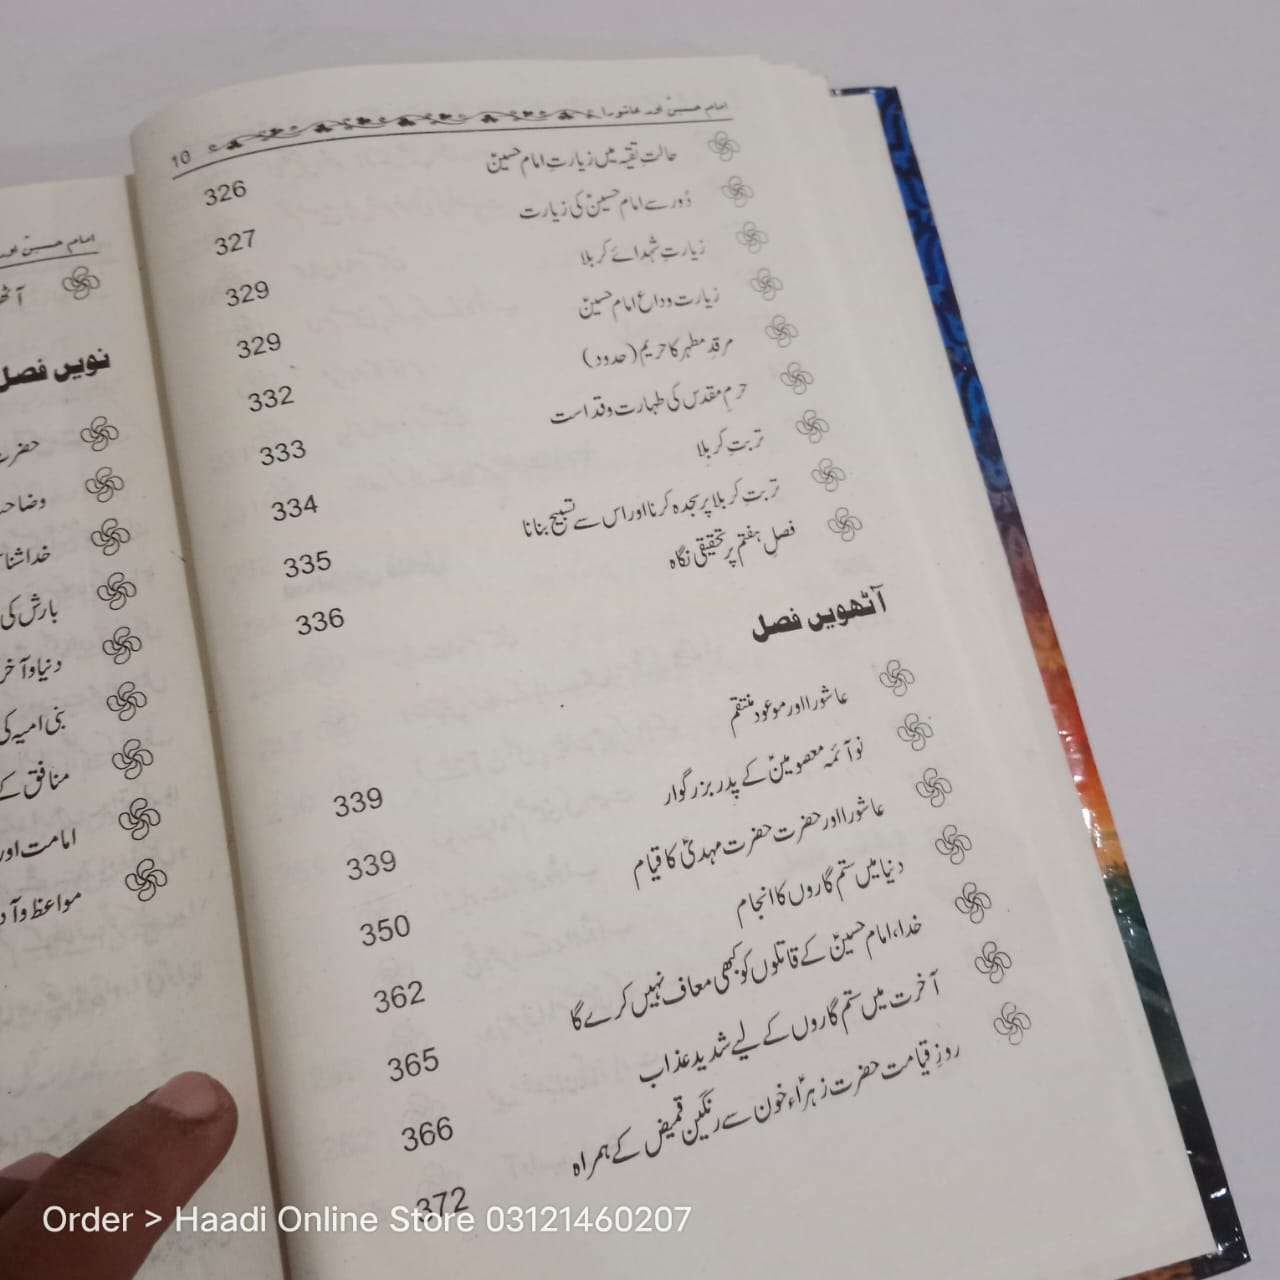 امام حسینؑ اور عاشورا 10
حالتِ تقیہ میں زیارتِ امام حسینؑ 326
دُور سے امام حسینؑ کی زیارت 327
زیارتِ شہدائے کربلا 329
زیارت وداع امام حسینؑ 329
مرقدِ مطہر کا حریم (حدود) 332
حرمِ مقدس کی طہارت و قداست 333
تربتِ کربلا 334
تربتِ کربلا پر سجدہ کرنا اور اس سے تسبیح بنانا 335
فصلِ ہفتم پر تحقیقی نگاہ 336
آٹھویں فصل
عاشورا اور موعود منتقم 339
نو آئمہ معصومینؑ کے پدر بزرگوار 339
عاشورا اور حضرت حضرت مہدیؑ کا قیام 350
دنیا میں ستم گاروں کا انجام 362
خدا، امام حسینؑ کے قاتلوں کو کبھی معاف نہیں کرے گا 365
آخرت میں ستم گاروں کے لیے شدید عذاب 366
روزِ قیامت حضرت زہراؑء خون سے رنگین قمیض کے ہمراہ 372
امام حسینؑ اور
نویں فصل
حضرت
خدا شنا
بارش کی
دنیا و آخر
بنی امیہ کی
منافق کے
امامت اور
مواعظ و آد
Order > Haadi Online Store 03121460207